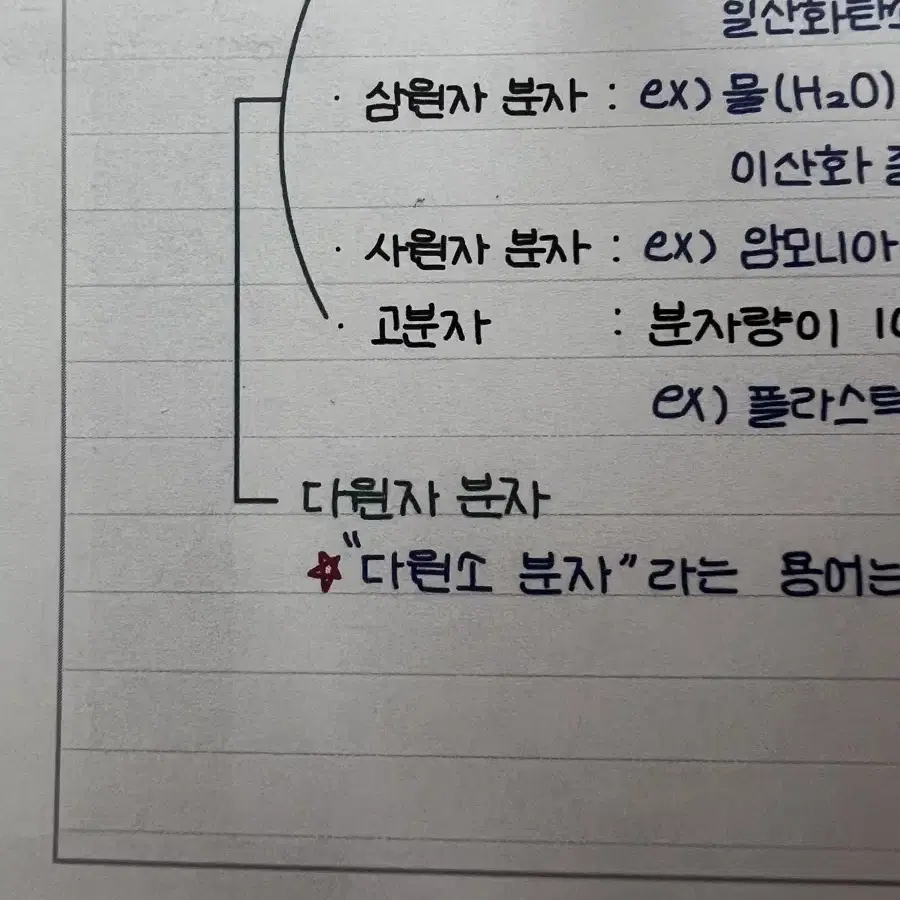 일산화탄
· 삼원자 분자 : ex) 물(H₂O)
이산화
· 사원자 분자 : ex) 암모니아
· 고분자 : 분자량이 10
ex) 플라스틱
다원자 분자
☆ "다원소 분자"라는 용어는